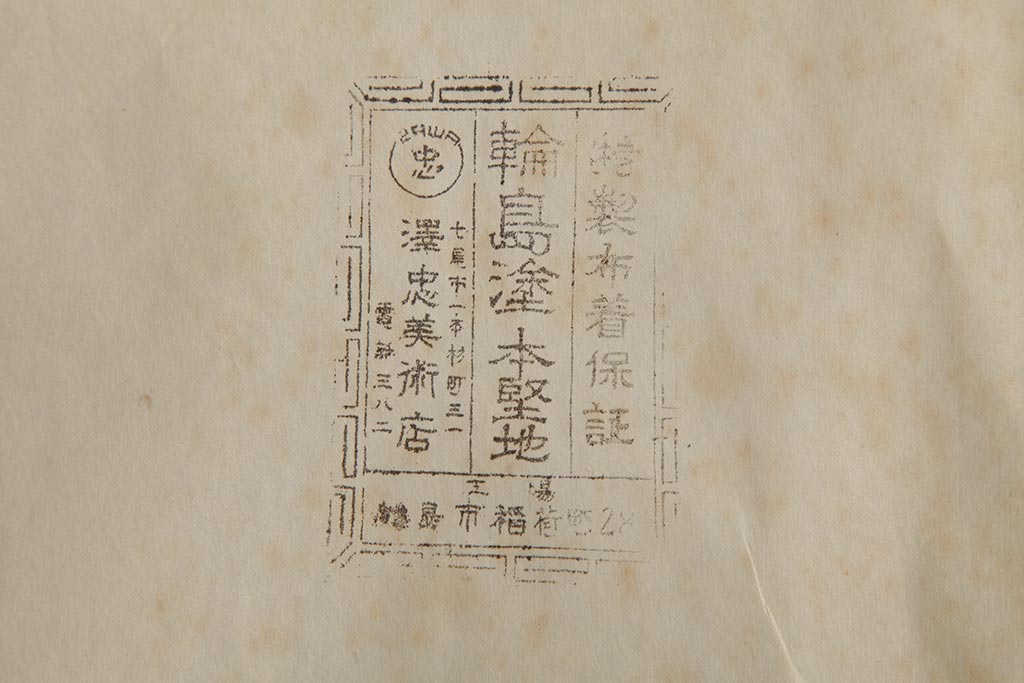 特製布着保証
輪島塗本堅地
七尾市一本杉町三一
澤忠美術店
ZAWA
忠
電話三八二
工場
輪島市稲荷町28